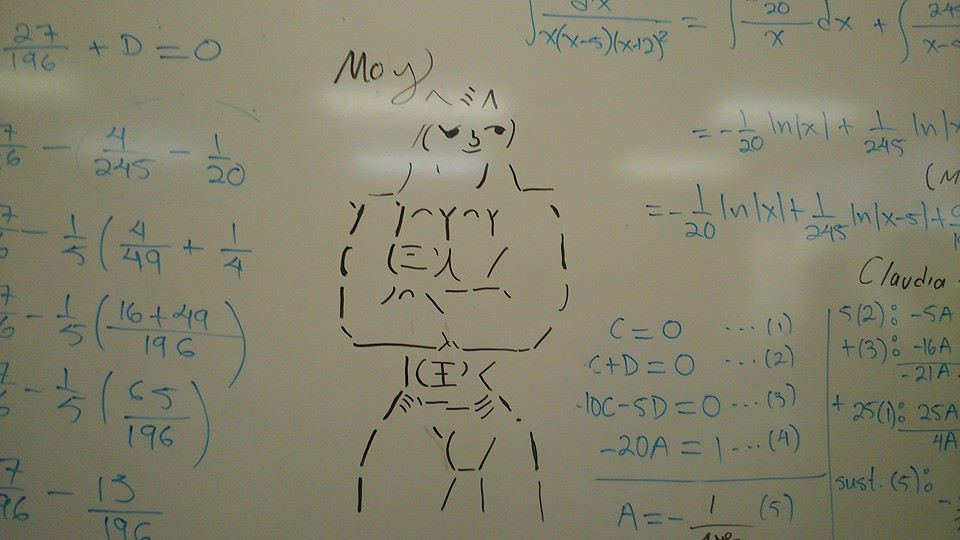 27/196 + D = 0
- 4/245 - 1/20
- 1/5 ( 4/49 + 1/4
- 1/5 ( 16+49 / 196 )
- 1/5 ( 65/196 )
- 13/196
Moy
∫ dx / x(x-5)(x-12)² = ∫ -20/x dx + ∫
= -1/20 ln|x| + 1/245 ln|x
= -1/20 ln|x| + 1/245 ln|x-5| +
C = 0 ...(1)
C+D = 0 ...(2)
-10C-5D = 0 ...(3)
-20A = 1 ...(4)
A = - 1/ (5)
Claudia
5(2): -5A
+(3): -16A
-21A
+ 25(1): 25A
4A
sust. (5):